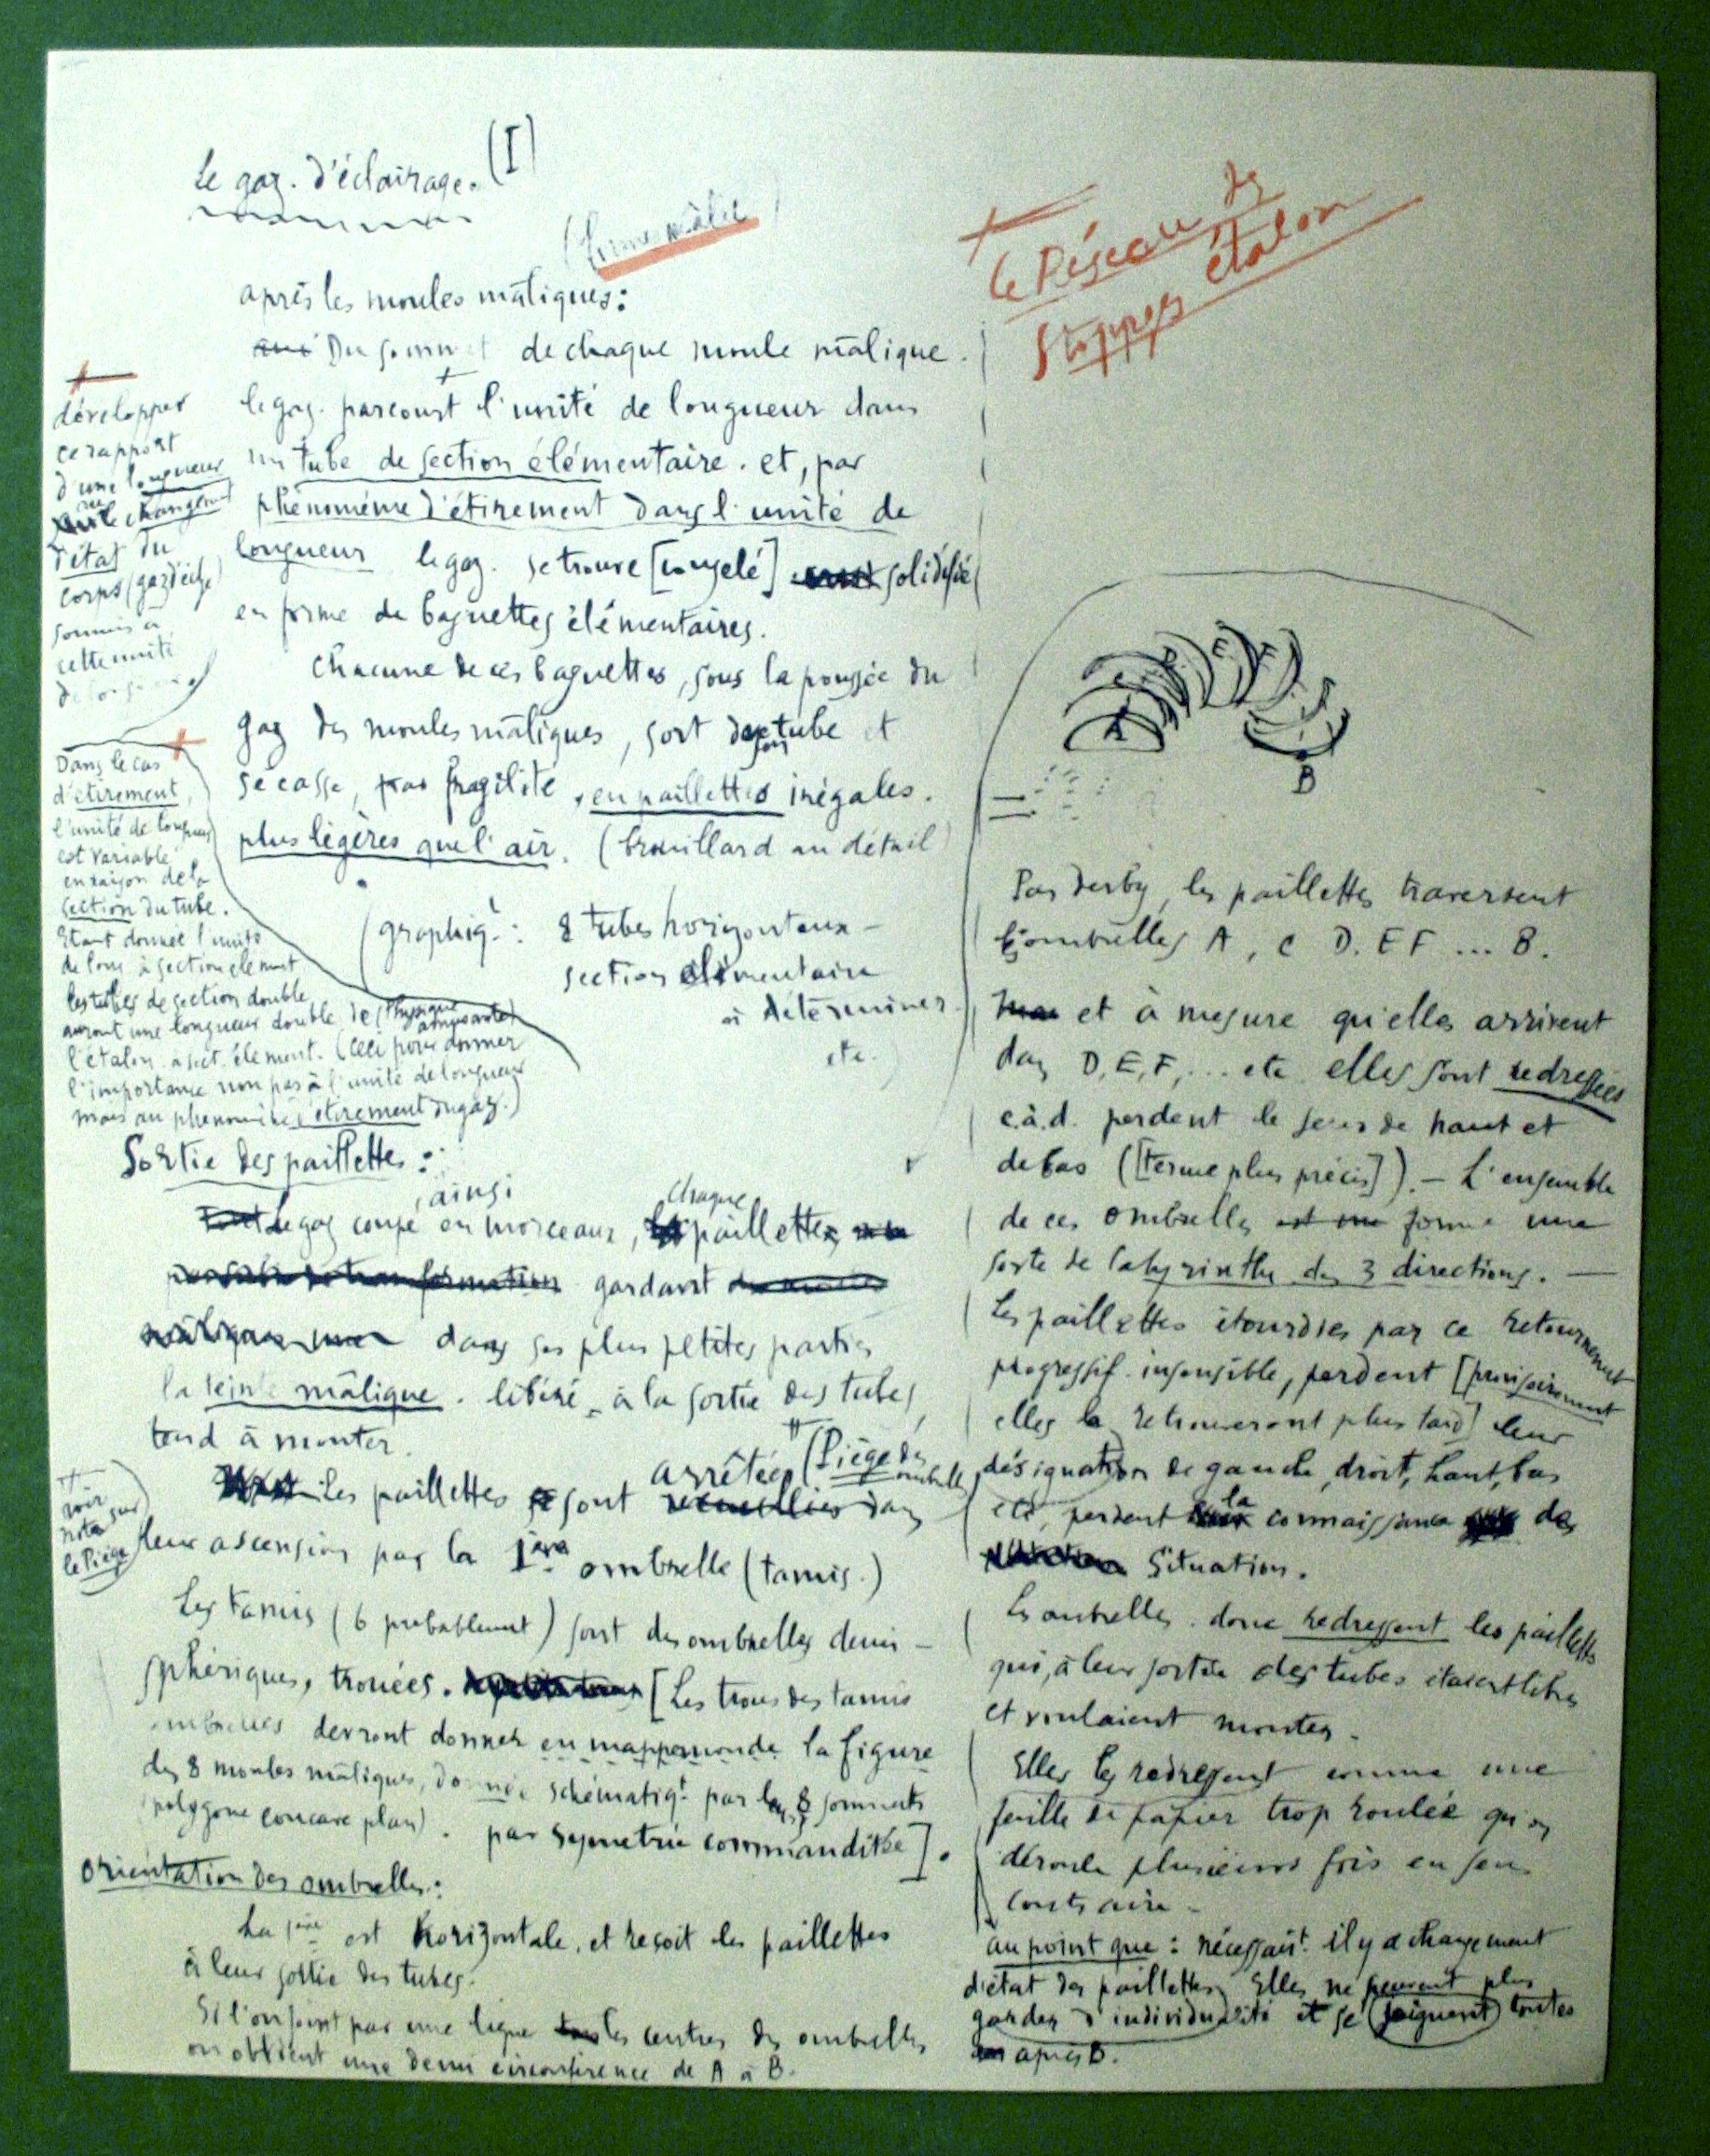 Le gaz. d'éclairage. (I)
après les moules mâliques:
Du sommet de chaque moule mâlique.
le gaz. parcourt l'unité de longueur dans
un tube de section élémentaire. et, par
phénomène d'étirement dans l'unité de
longueur le gaz. se trouve [congelé] solidifié
en forme de baguettes élémentaires.
Chacune de ces baguettes, sous la poussée du
gaz des moules mâliques, sort de son tube et
se casse, par fragilité, en paillettes inégales.
plus légères que l'air. (brouillard au détail)
(graphiqt: 8 tubes horizontaux -
section élémentaire
à déterminer
etc.
+
développer
ce rapport
d'une longueur
au changement
d'état du
corps (gaz d'écl.)
soumis à
cette unité
de longueur
+
Dans le cas
d'étirement,
l'unité de longueur
est variable
en raison de la
section du tube.
Etant donnée l'unité
de long à section élément
les tubes de section double
auront une longueur double de (Physique amusante)
l'étalon à sect. élément. (ceci pour donner
l'importance non pas à l'unité de longueur
mais au phénomène étirement du gaz.)
Sortie des paillettes:
Le gaz coupé ainsi en morceaux, chaque paillette
gardant
dans ses plus petites parties
la teinte mâlique. libéré à la sortie des tubes,
tend à monter.
Les paillettes sont arrêtées (Piège des ombrelles) dans
leur ascension par la 1ère ombrelle (tamis.)
+
voir
note sur
le Piège
Les tamis (6 probablement) sont des ombrelles demi-
sphériques, trouées. [Les trous des tamis
ombrelles devront donner en mappemonde la figure
des 8 moules mâliques, donnée schématiqt. par les 8 sommets
(polygone concave plan). par symétrie commanditée].
Orientation des ombrelles:
La 1ère est horizontale, et reçoit les paillettes
à leur sortie des tubes.
Si l'on joint par une ligne les centres des ombrelles
on obtient une demi circonférence de A à B.
+
Le Réseau des
stoppages étalon
A D E F
B
Par derby, les paillettes traversent
les ombrelles A, C D. E F ... B.
et à mesure qu'elles arrivent
dans D, E, F, ... etc elles sont redressées
c.à.d. perdent le sens de haut et
de bas ([terme plus précis]). — L'ensemble
de ces ombrelles forme une
sorte de labyrinthe des 3 directions. —
Les paillettes étourdies par ce retournement
progressif. insensible, perdent [provisoirement
elles la retrouveront plus tard] leur
désignation de gauche, droit, haut, bas
etc, perdent la connaissance de
situation.
Les ombrelles. donc redressent les paillettes
qui, à leur sortie des tubes étaient libres
et voulaient monter.
Elles les redressent comme une
feuille de papier trop roulée qu'on
déroule plusieurs fois en sens
contraire -
au point que: nécessairt. il y a changement
d'état des paillettes. Elles ne peuvent plus
garder d'individualité et se joignent toutes
après B.